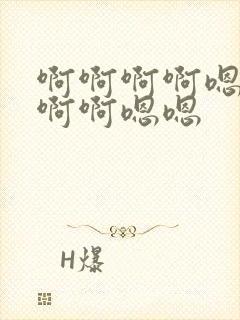 啊啊啊啊嗯
啊啊嗯嗯
H爆